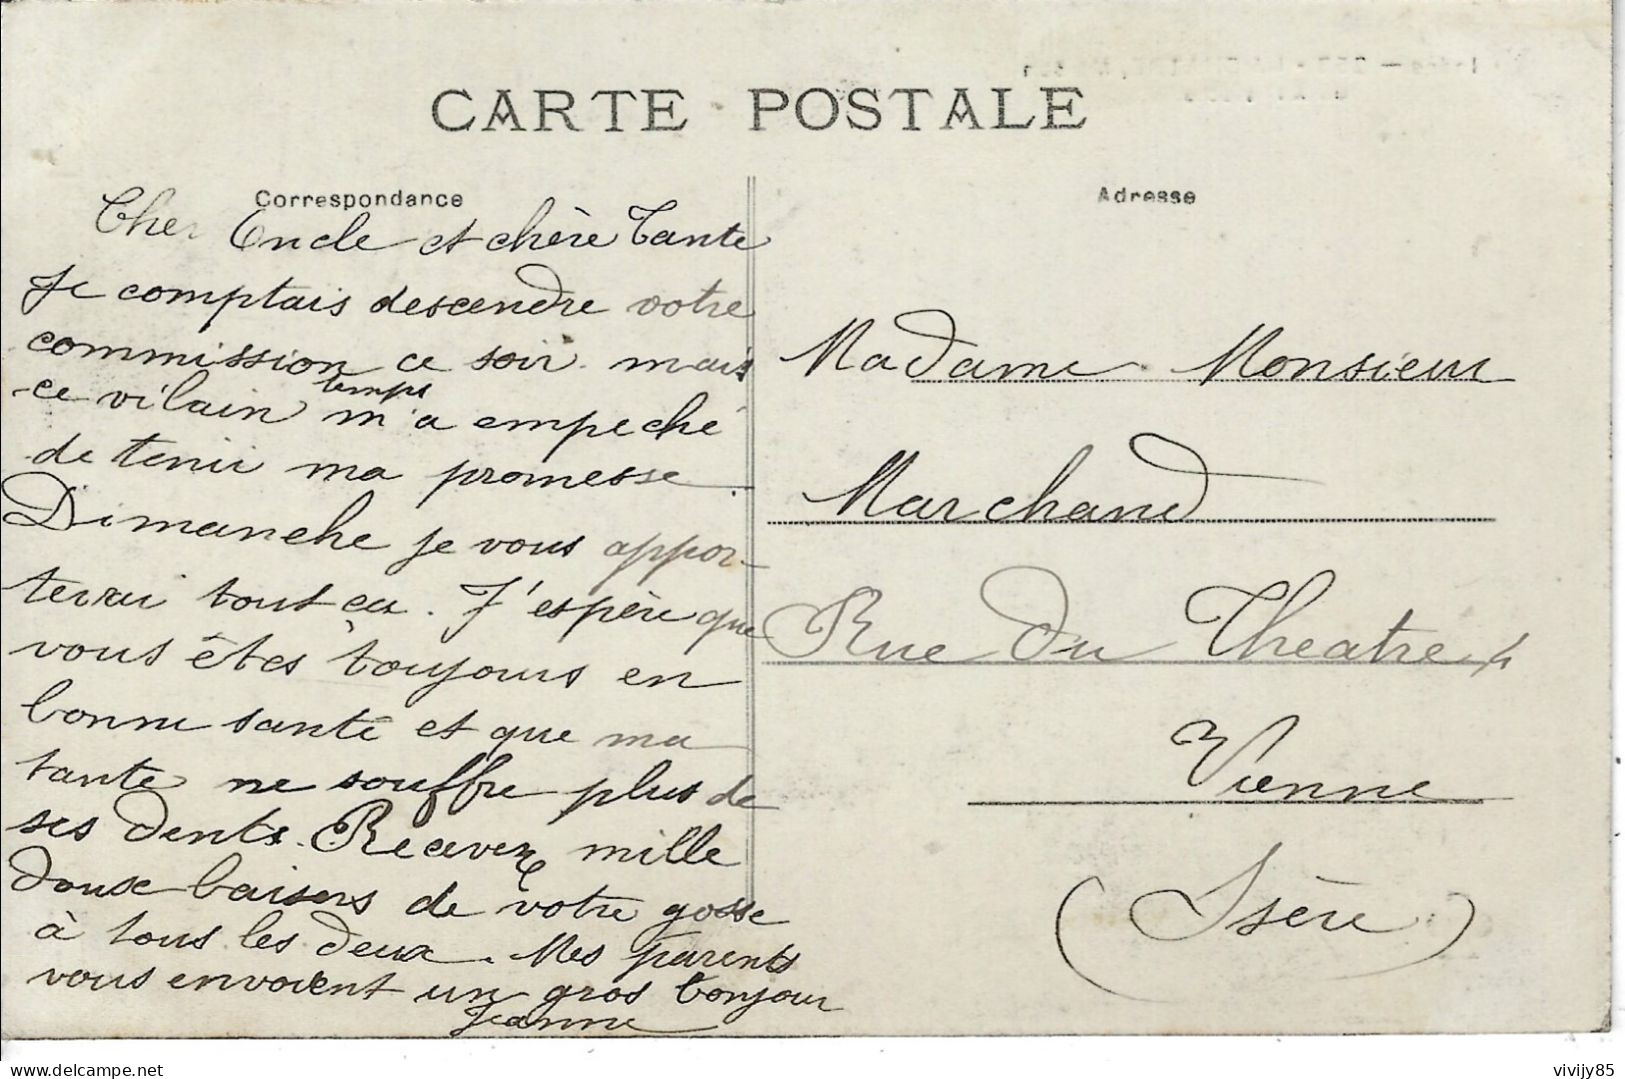 CARTE POSTALE
Correspondance
Cher Oncle et chère Tante
Je comptais descendre votre
commission ce soir mais
ce vilain temps m'a empeché
de tenir ma promesse.
Dimanche je vous appor-
terai tout ça. J'espère que
vous êtes toujours en
bonne santé et que ma
tante ne souffre plus de
ses dents. Recevez mille
doux baisers de votre gosse
à tous les deux. Mes parents
vous envoient un gros bonjour
Jeanne
Adresse
Madame Monsieur
Marchand
Rue du Theatre 4
Vienne
(Isère)
delcampe.net
vivijy85